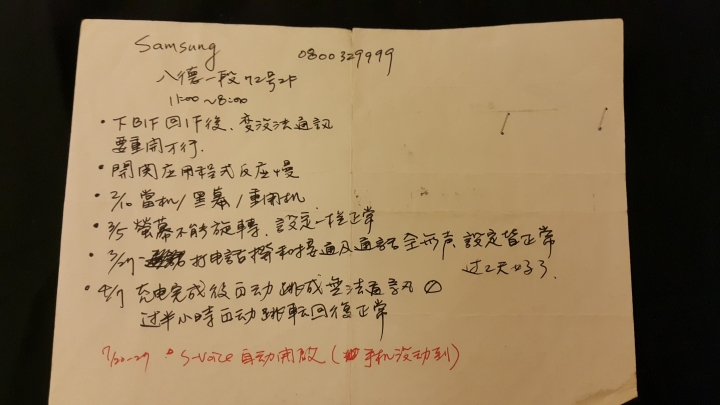 Samsung
0800329999
八德一段72号2F
11:00~8:00
• 下B1F回1F後、変没法通訊
要重開才行.
• 開関应用程式反应慢
• 2/10 當机/黑幕/重開机
• 3/5 螢幕不能旋轉、設定一樣正常
• 3/27 打電話撥和接通及通話全無声 設定皆正常
过2天好了.
• 4/7 充电完成後自动跳成無法通訊
过半小時自动跳転回復正常
7/20-29 • S-Voice 自动開啟(手机没动到)